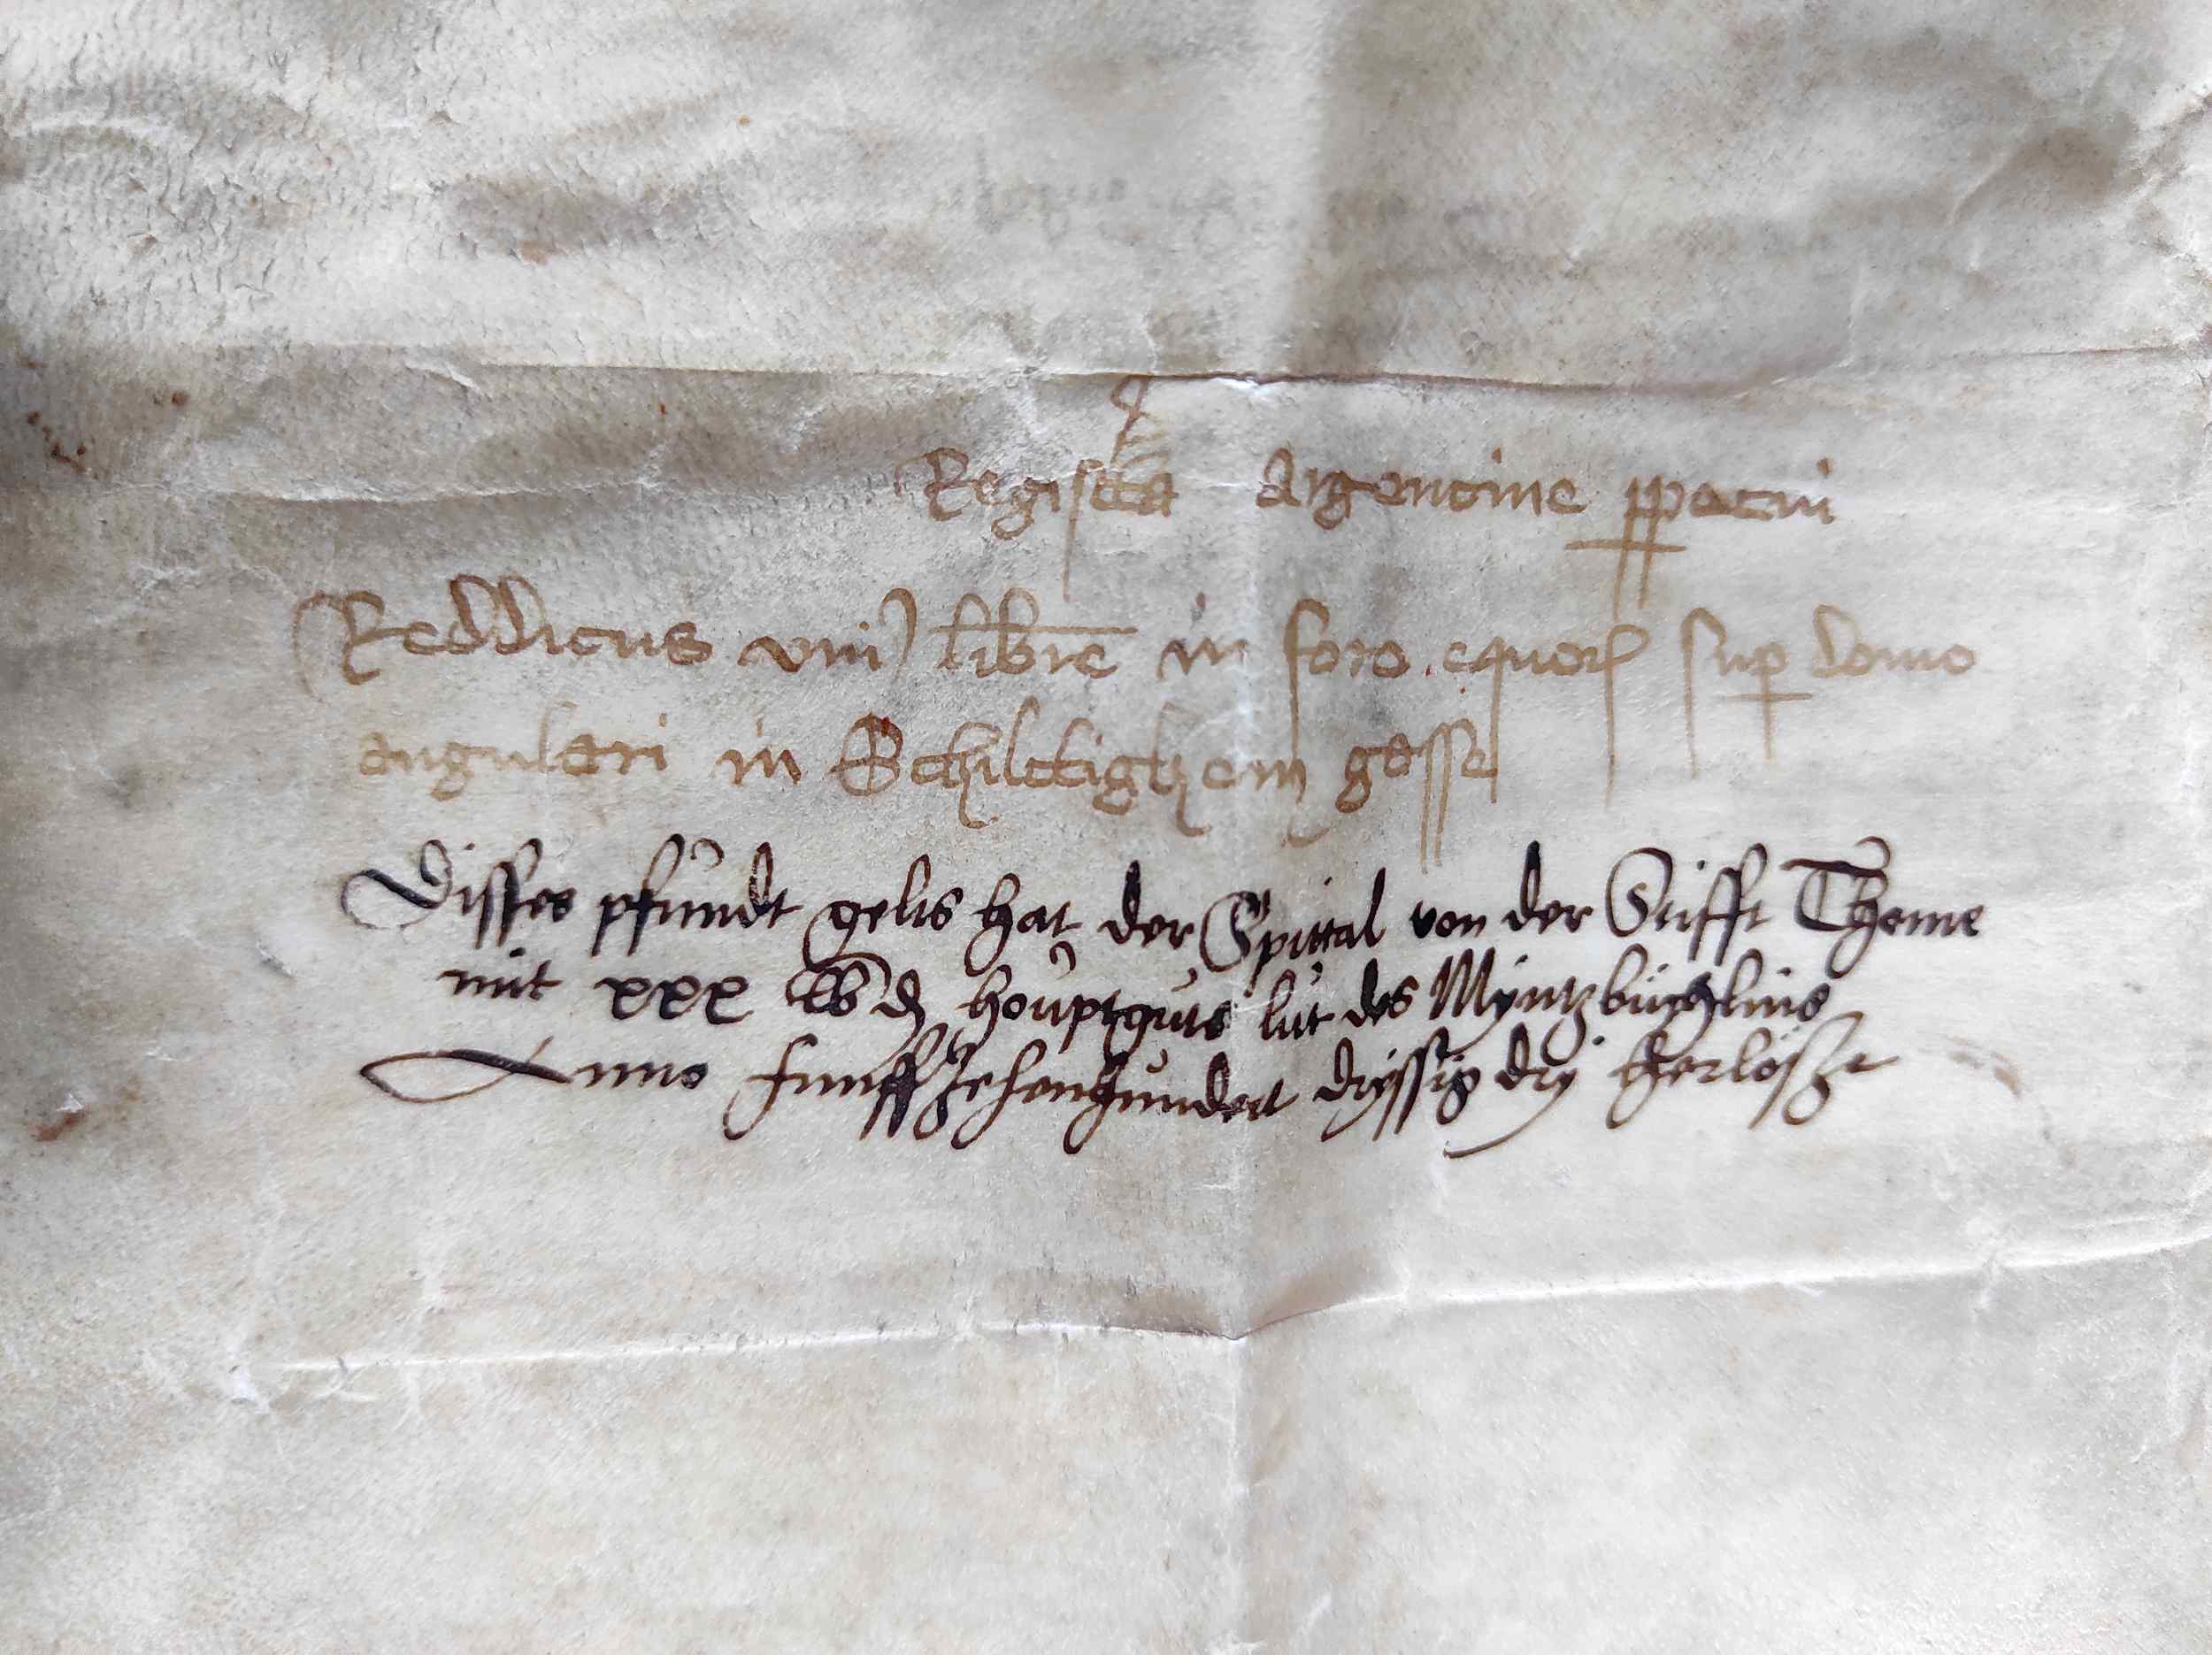 Registrata Argentine ppetui
Redditus viii librē in foro equoꝝ sup domo
angulari in Schilttigheim gasse
Disses pfundt gelts hat der Spittal von der Stifft Thome
mit xxx lb d houptguts lut des Myntzbüchlins
Anno funffzehenhundert dryssig dry herlößt